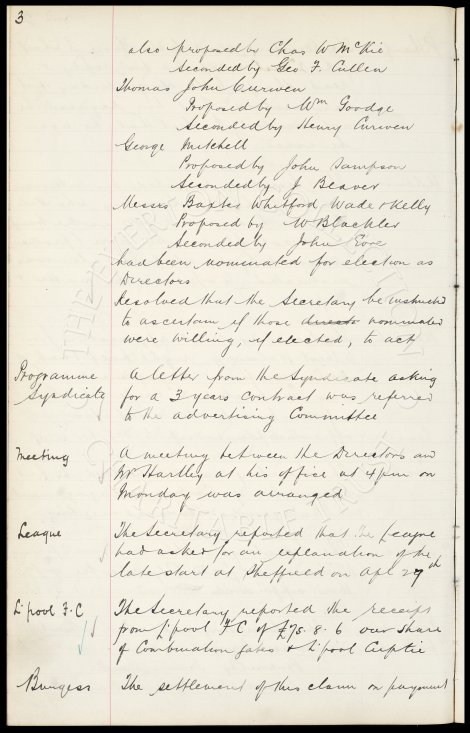 3
also proposed by Chas W McKie
Seconded by Geo F. Cullen
Thomas John Curwen
Proposed by Wm Goodge
Seconded by Henry Curwen
George Mitchell
Proposed by John Sampson
Seconded by J Beaver
Messrs Baxter Whitford Wade & Kelly
Proposed by W Blackler
Seconded by John
had been nominated for election as
Directors
Resolved that the Secretary be instructed
to ascertain if those nominated
were willing, if elected, to act
Programme A letter from the Syndicate asking
Syndicate for a 3 years contract was referred
to the advertising Committee
Meeting A meeting between the Directors and
Mr Hartley at his office at 4 pm on
Monday was arranged
League The Secretary reported that the League
had asked for an explanation of the
late start at Sheffield on Apl 27th
L'pool F.C The Secretary reported the receipt
from L'pool FC of £75.8.6 our share
of Combination gates & L'pool Cuptie
Burgess The settlement of this claim on payment